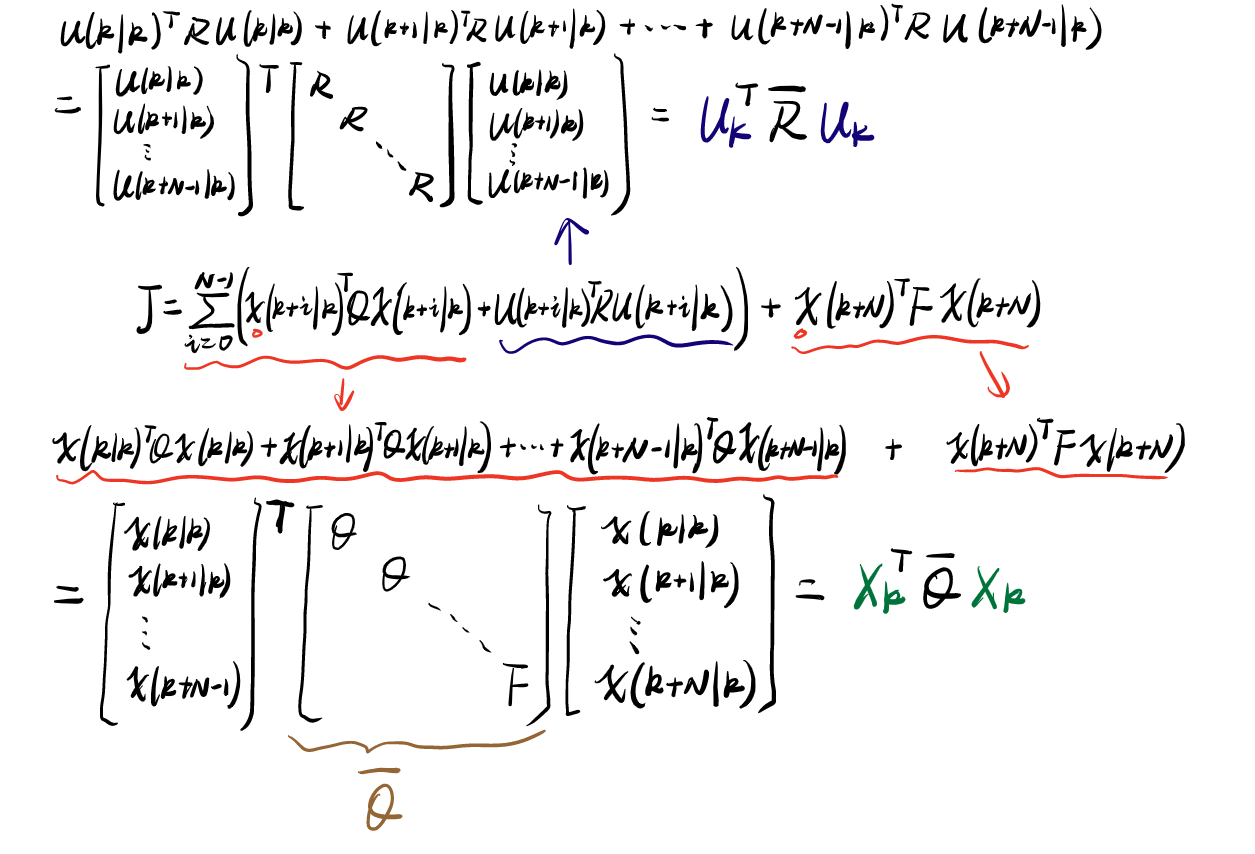 u(k|k)ᵀRu(k|k) + u(k+1|k)ᵀRu(k+1|k) + ⋯ + u(k+N-1|k)ᵀRu(k+N-1|k)
= [u(k|k) u(k+1|k) ⋮ u(k+N-1|k)]ᵀ [R R ⋱ R] [u(k|k) u(k+1|k) ⋮ u(k+N-1|k)] = U_kᵀ R̄ U_k
J = ∑_{i=0}^{N-1} (x(k+i|k)ᵀQx(k+i|k) + u(k+i|k)ᵀRu(k+i|k)) + x(k+N)ᵀFx(k+N)
x(k|k)ᵀQx(k|k) + x(k+1|k)ᵀQx(k+1|k) + ⋯ + x(k+N-1|k)ᵀQx(k+N-1|k) + x(k+N)ᵀFx(k+N)
= [x(k|k) x(k+1|k) ⋮ x(k+N-1)]ᵀ [Q Q ⋱ F] [x(k|k) x(k+1|k) ⋮ x(k+N|k)] = X_kᵀ Q̄ X_k
Q̄